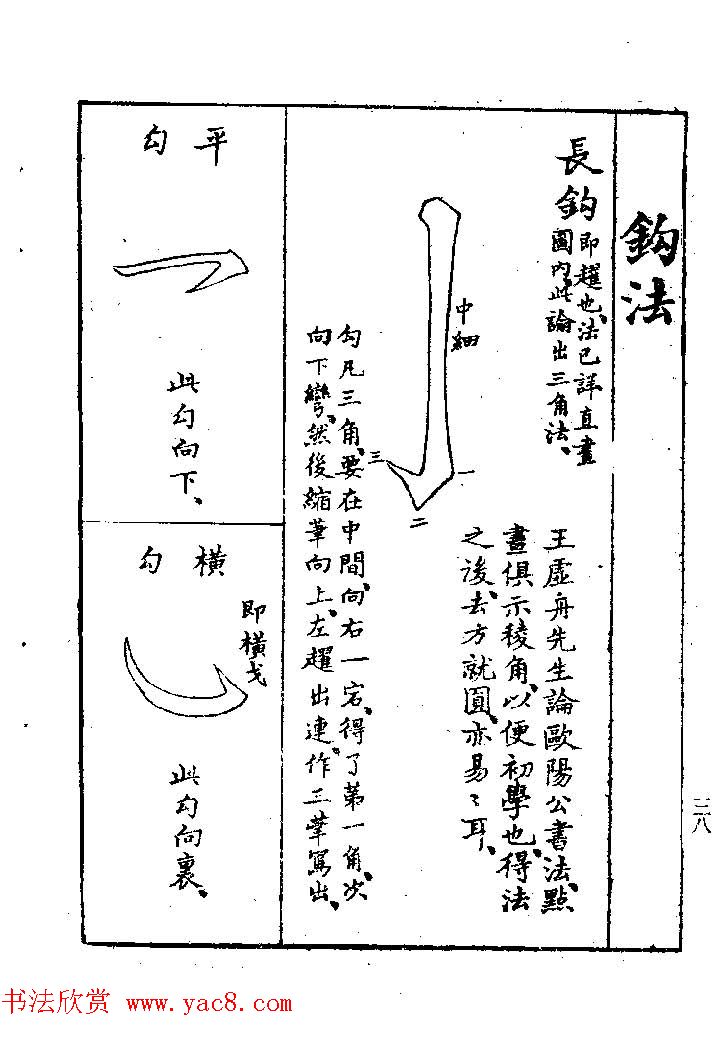 鈎法
長鈎即趯也、法已詳直畫
圖内、此論出三角法、
中細
一
二
三
王虛舟先生論歐陽公書法、點
畫俱示稜角、以便初學也、得法
之後、去方就圓、亦易〻耳、
勾凡三角、要在中間、向右一宕、得了第一角、次
向下彎、然後縮筆向上、左趯出、連作三筆寫出、
平勾
此勾向下、
橫勾
即橫戈
此勾向裏、
三八
书法欣赏 www.yac8.com